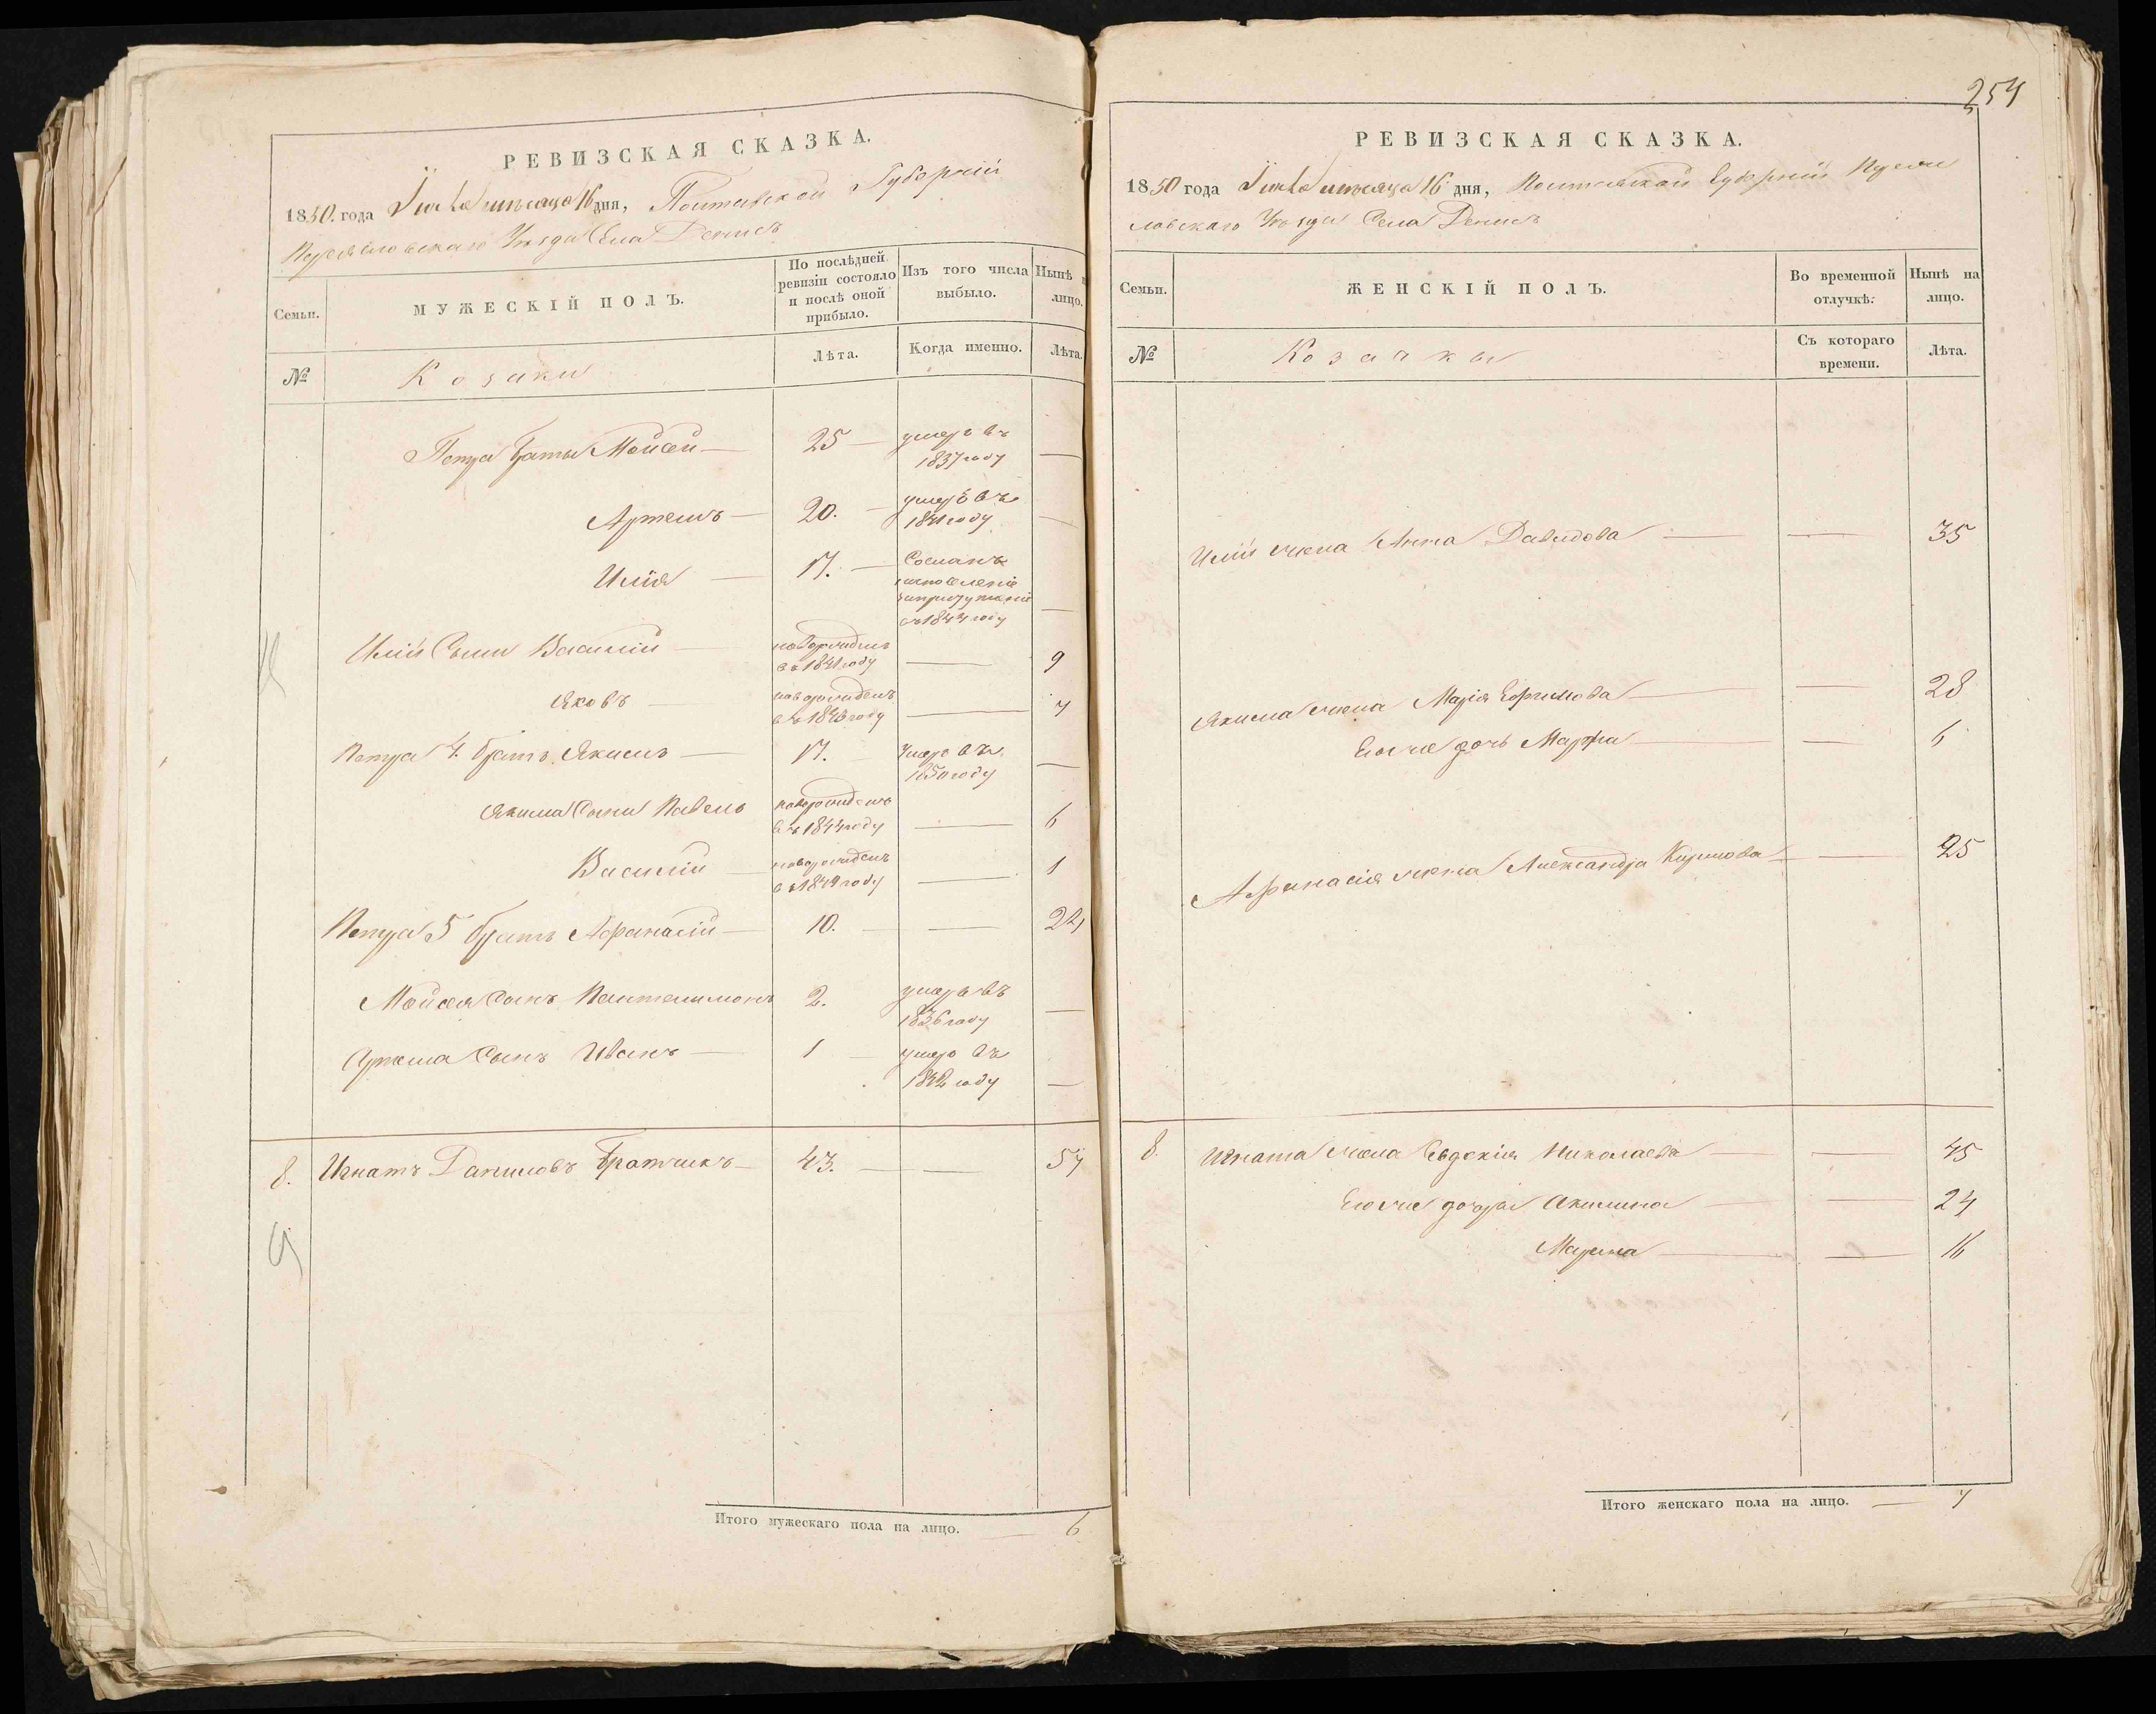 РЕВИЗСКАЯ СКАЗКА.
1850. года Июля месяца 16 дня, Полтавской Губерніи
Переяславскаго Уезда Села Денисъ
Семьи.
МУЖЕСКІЙ ПОЛЪ.
По послѣдней ревизіи состояло и послѣ оной прибыло.
Изъ того числа выбыло.
Нынѣ
лицо.
№
Козаки
Лѣта.
Когда именно.
Лѣта.
Петра Браты Мойсей — 25 — умеръ въ 1837 году —
Артемъ — 20. — умеръ въ году —
Илія — 17. — Сосланъ на поселеніе въ 1844 году —
Иліи Сыны Василій — новорожденъ въ 1841 году — 9
Яковъ — новорожденъ въ 1843 году — 7
Петра 4. братъ Якимъ — 17. — умеръ въ 1850 году —
Якима Сыны Павелъ новорожденъ въ 1844 году — 6
Василій — новорожденъ въ 1849 году — 1
Петра 5 братъ Афанасій — 10. — — 24
Мойсея Сынъ Пантелимонъ 2. умеръ въ 1836 году —
Артема Сынъ Иванъ — 1 — умеръ въ году —
8. Игнатъ Даниловъ Братчикъ — 43. — — 57
Итого мужескаго пола на лицо. — 6
254
РЕВИЗСКАЯ СКАЗКА.
1850 года Июля месяца 16 дня, Полтавской Губерніи Перея
славскаго Уезда Села Денисъ
Семьи.
ЖЕНСКІЙ ПОЛЪ.
Во временной отлучкѣ.
Нынѣ на лицо.
№
Козачки
Съ котораго времени.
Лѣта.
Иліи жена Анна Давидова — — 35
Якима жена Марія Ефимова — — 28
Его же дочь Марфа — — 6
Афанасія жена Александра Карпова — — 25
8. Игната жена Евдокія Николаева — — 45
Его же дочери Акилина — — 24
Марина — — 16
Итого женскаго пола на лицо. — 7